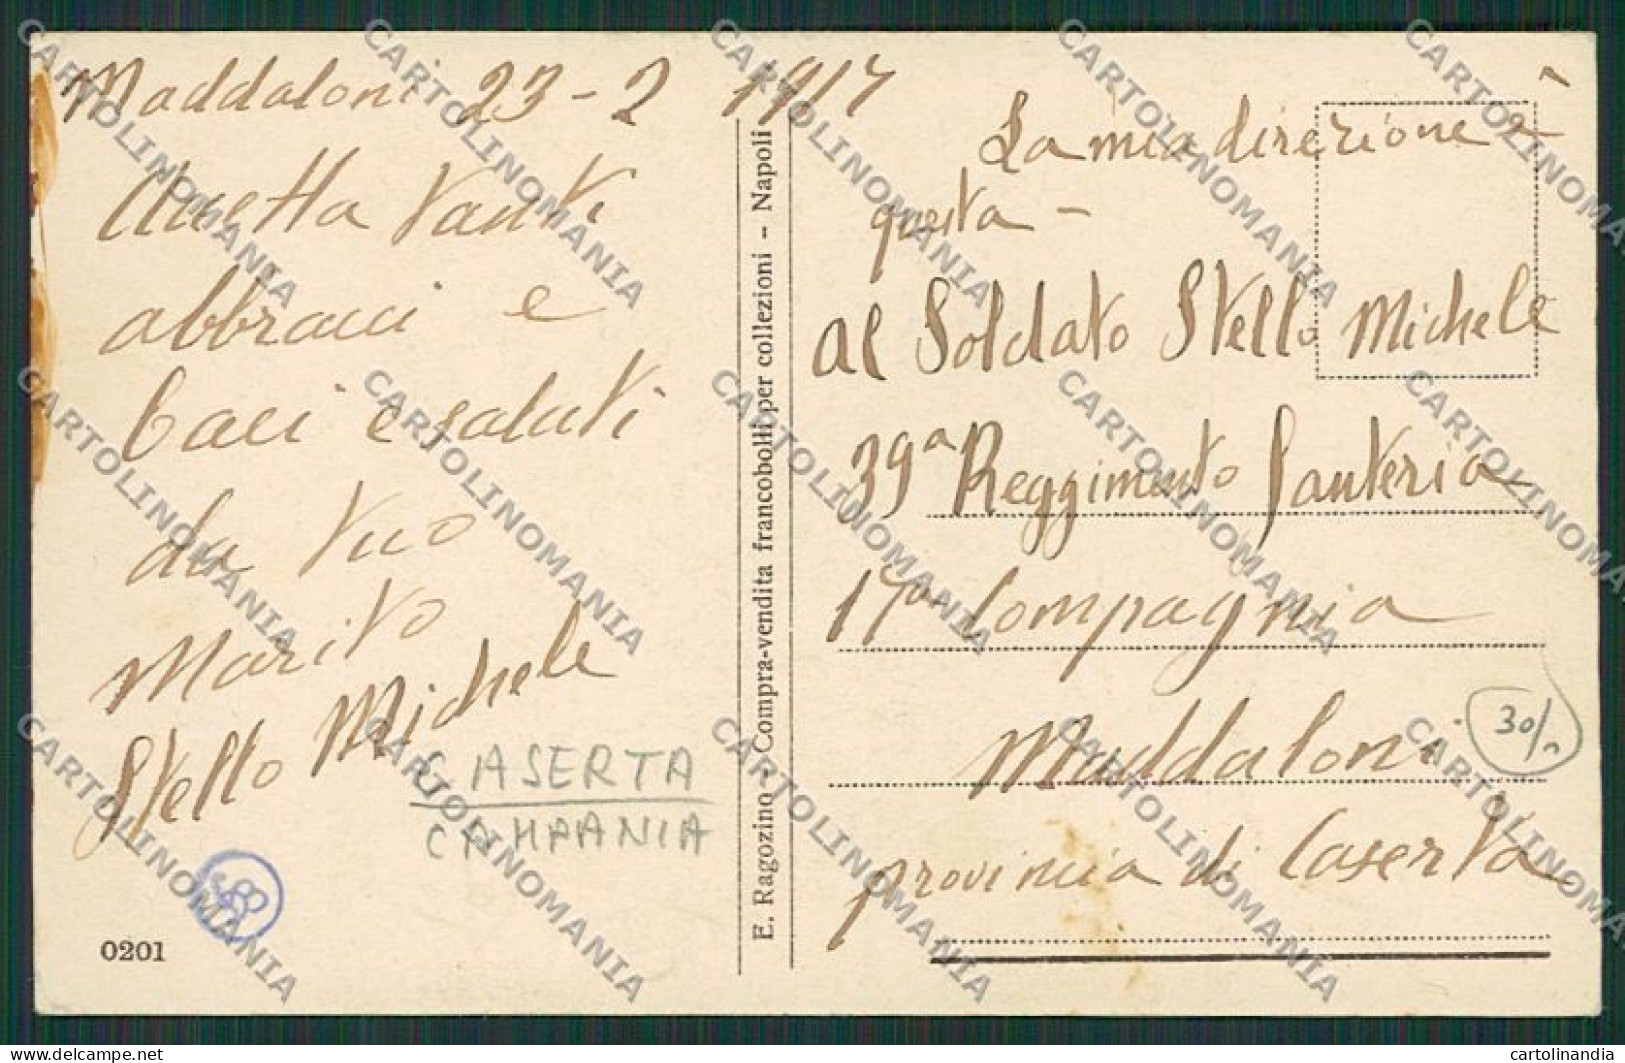 Maddaloni 23-2 1917
Accetta tanti
abbracci e
baci e saluti
da tuo
Marito
Stello Michele
CASERTA
CAMPANIA
0201
E. Ragozino - Compra-vendita francobolli per collezioni - Napoli
La mia direzione e
questa -
al Soldato Stello Michele
39a Reggimento Fanteria
17a Compagnia
Maddaloni
provincia di Caserta
30/
CARTOLINOMANIA
delcampe.net
cartolinandia